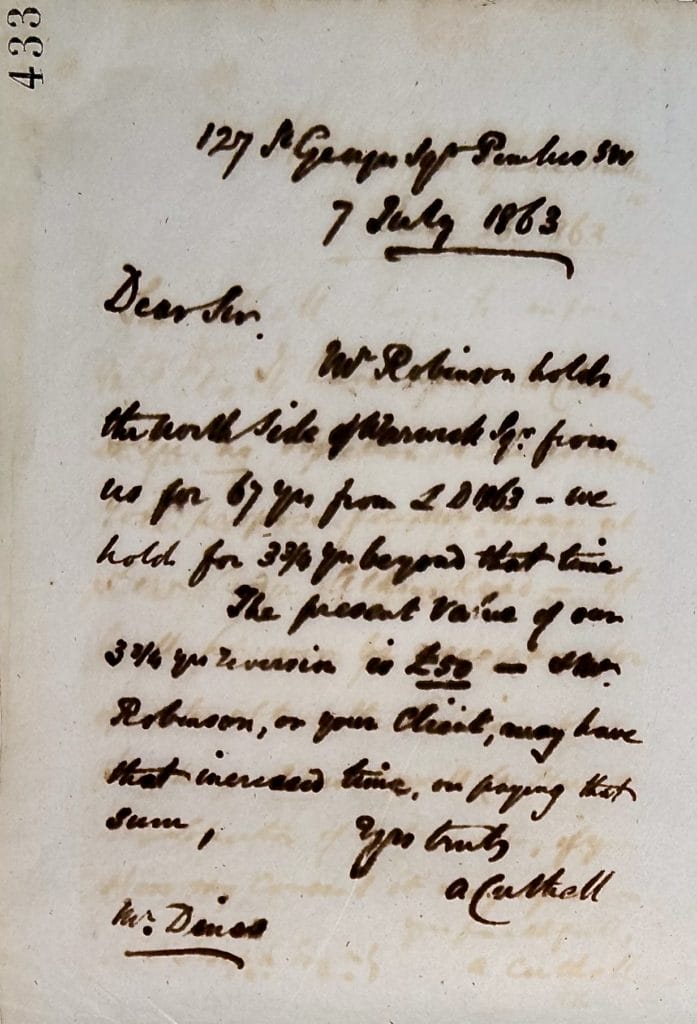 433
127 St Georges Sqr Pimlico SW
7 July 1863
Dear Sir.
Mr Robinson holds
the north side of Warwick Sqr. from
us for 67 yrs from L D 1863 – we
hold for 3 3/4 yrs beyond that time
The present value of our
3 3/4 yrs reversion is £50 – & Mr
Robinson, or your Client, may have
that increased time, on paying that
sum,
Yrs truly
A Cuthell
Mr. Dines